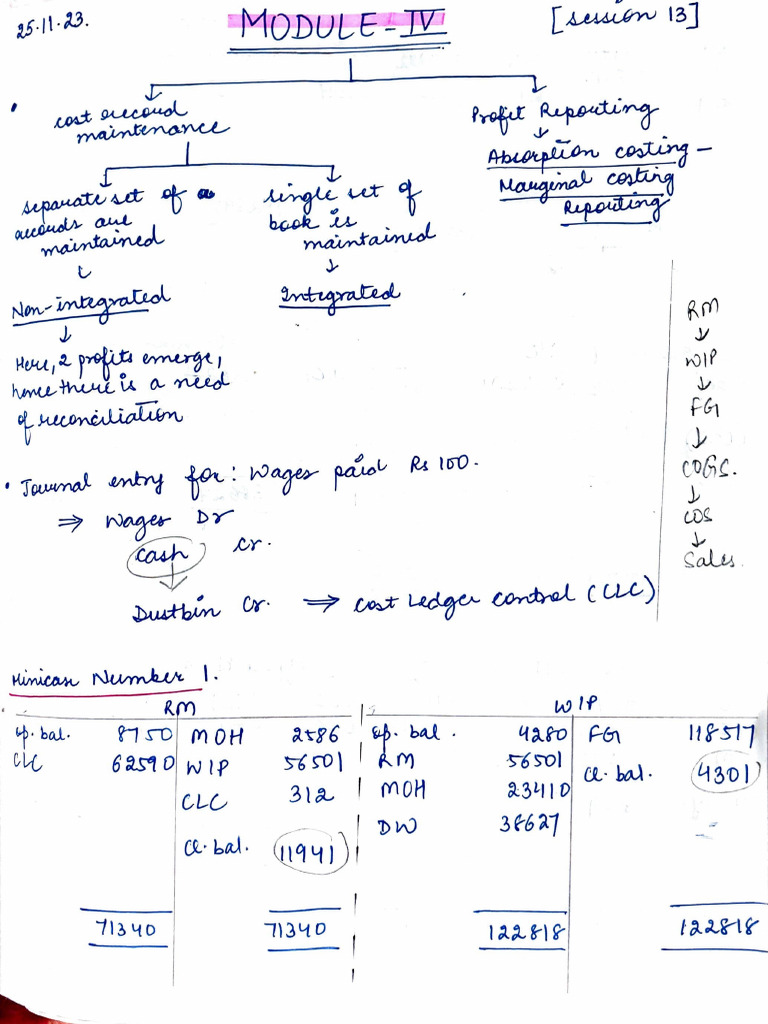 25.11.23.
MODULE-IV
[session 13]
cost record
maintenance
Profit Reporting
Absorption costing -
Marginal costing
Reporting
separate set of
records are
maintained
single set of
book is
maintained
Non-integrated
Integrated
Here, 2 profits emerge,
hence there is a need
of reconciliation
RM
WIP
FG
COGS.
COS
Sales.
• Journal entry for: Wages paid Rs 100.
⇒ Wages Dr
cash cr.
Dustbin Cr. ⇒ Cost Ledger Control (CLC)
Minicase Number 1.
RM
op. bal. 8750 MOH 2586
CLC 62590 WIP 56501
CLC 312
Cl. bal. 11941
71340 71340
WIP
op. bal. 4280 FG 118517
RM 56501 Cl. bal. 4301
MOH 23410
DW 38627
122818 122818